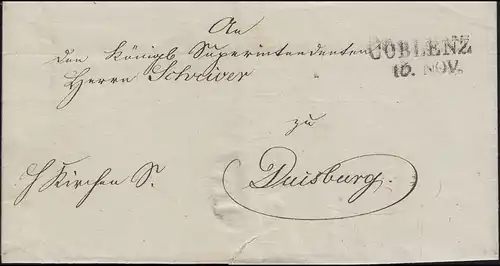 An
den Königl Superintendenten
Herrn Schriver
COBLENZ
16. NOV.
zu
Kirchen S.
Duisburg.